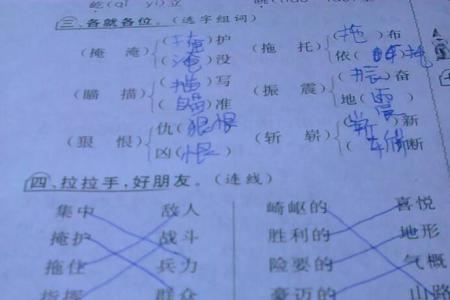 屹(yì yǐ)立
三、各就各位。(选字组词)
(掩 淹) (掩)护 (淹)没
(拖 托) (拖)布 依(托)
(瞄 描) (描)写 (瞄)准
(振 震) (振)奋 地(震)
(狠 恨) 仇(狠恨) 凶(恨)
(斩 崭) (崭)新 (斩)断
四、拉拉手,好朋友。(连线)
集中 敌人 崎岖的 喜悦
掩护 战斗 胜利的 地形
拖住 兵力 险要的 气概
指挥 群众 豪迈的 山路